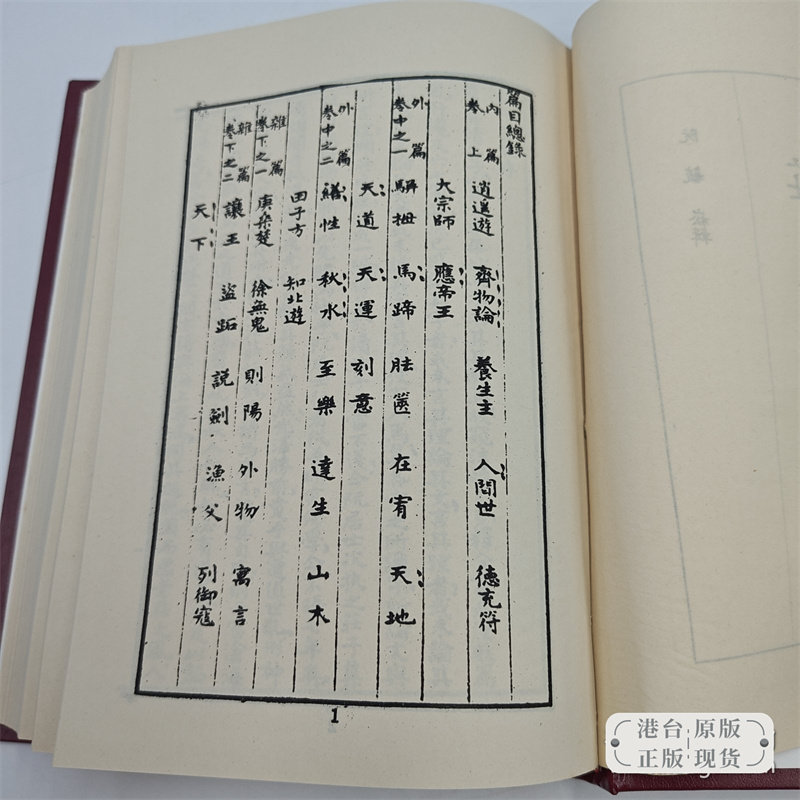 篇目總錄
內篇 卷上 逍遙遊 齊物論 養生主 人間世 德充符
大宗師 應帝王
外篇 卷中之一 駢拇 馬蹄 胠篋 在宥 天地
天道 天運 刻意
外篇 卷中之二 繕性 秋水 至樂 達生 山木
田子方 知北遊
雜篇 卷下之一 庚桑楚 徐無鬼 則陽 外物 寓言
雜篇 卷下之二 讓王 盜跖 説劍 漁父 列御寇
天下
1
港台原版
正版现货